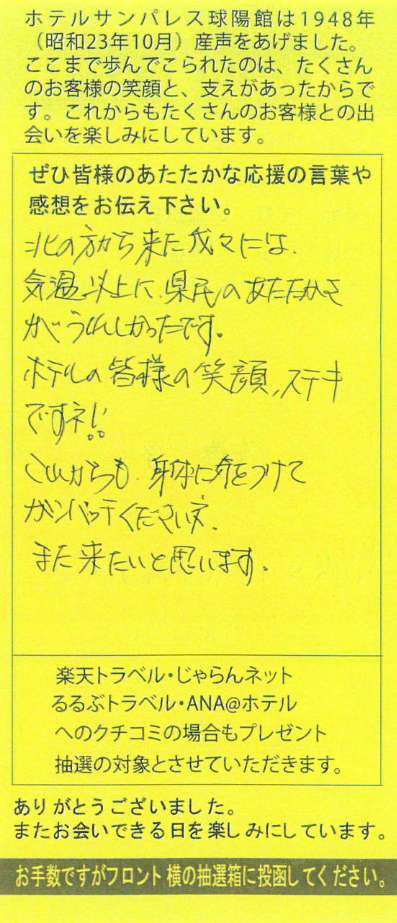 ホテルサンパレス球陽館は1948年
（昭和23年10月）産声をあげました。
ここまで歩んでこられたのは、たくさん
のお客様の笑顔と、支えがあったからで
す。これからもたくさんのお客様との出
会いを楽しみにしています。
ぜひ皆様のあたたかな応援の言葉や
感想をお伝え下さい。
北の方から来た我々には、
気温以上に、県民のあたたかさ
がうれしかったです。
ホテルの皆様の笑顔、ステキ
ですネ!!
これからも、身体に気をつけて
ガンバッテくださいネ。
また来たいと思います。
楽天トラベル・じゃらんネット
るるぶトラベル・ANA@ホテル
へのクチコミの場合もプレゼント
抽選の対象とさせていただきます。
ありがとうございました。
またお会いできる日を楽しみにしています。
お手数ですがフロント横の抽選箱に投函してください。